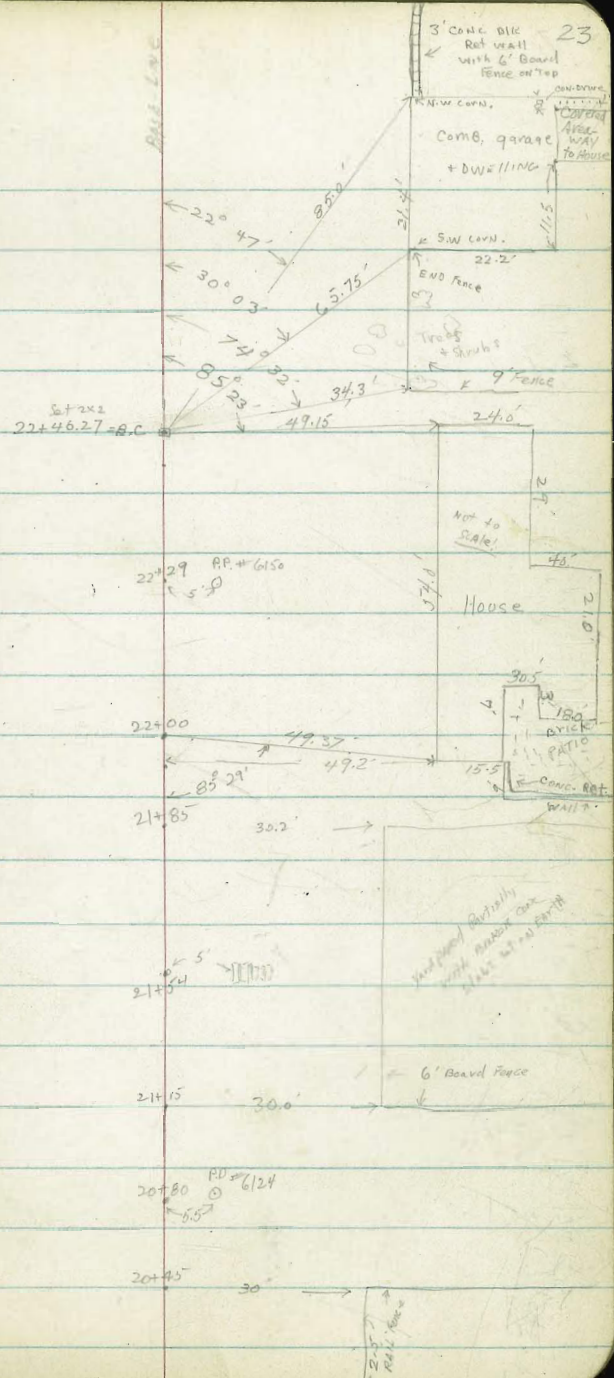 23
3' CONC Blk
Ret WAll
with 6' Board
Fence on Top
BASE LINE
N.W CORN.
CON-DVING
Covered
Area
WAY
to House
Comb, garage
+ DWElliNG
85.0'
21.4'
11.5
22°
47'
S.W CORN.
22.2'
END Fence
30°
03'
65.75'
Trees
+ Shrubs
74°
32'
85°
23'
34.3'
9' Fence
Set 2x2
22+46.27 = B.C
49.15
24.0'
29'
Not to
Scale!
40'
22+29
P.P. # 6150
5'
54.0'
House
21.0'
30.5'
18.0'
BRICK
PATIO
22+00
49.37
49.2'
15.5
85° 29'
CONC. Ret.
WAll
21+85
30.2'
Yard paved Partially
with Broken Conc
Slabs set on Earth
5'
21+54
6' Board Fence
21+15
30.0'
20+80
P.P # 6124
5.5'
20+45
30'
2.5'
RAIL Fence